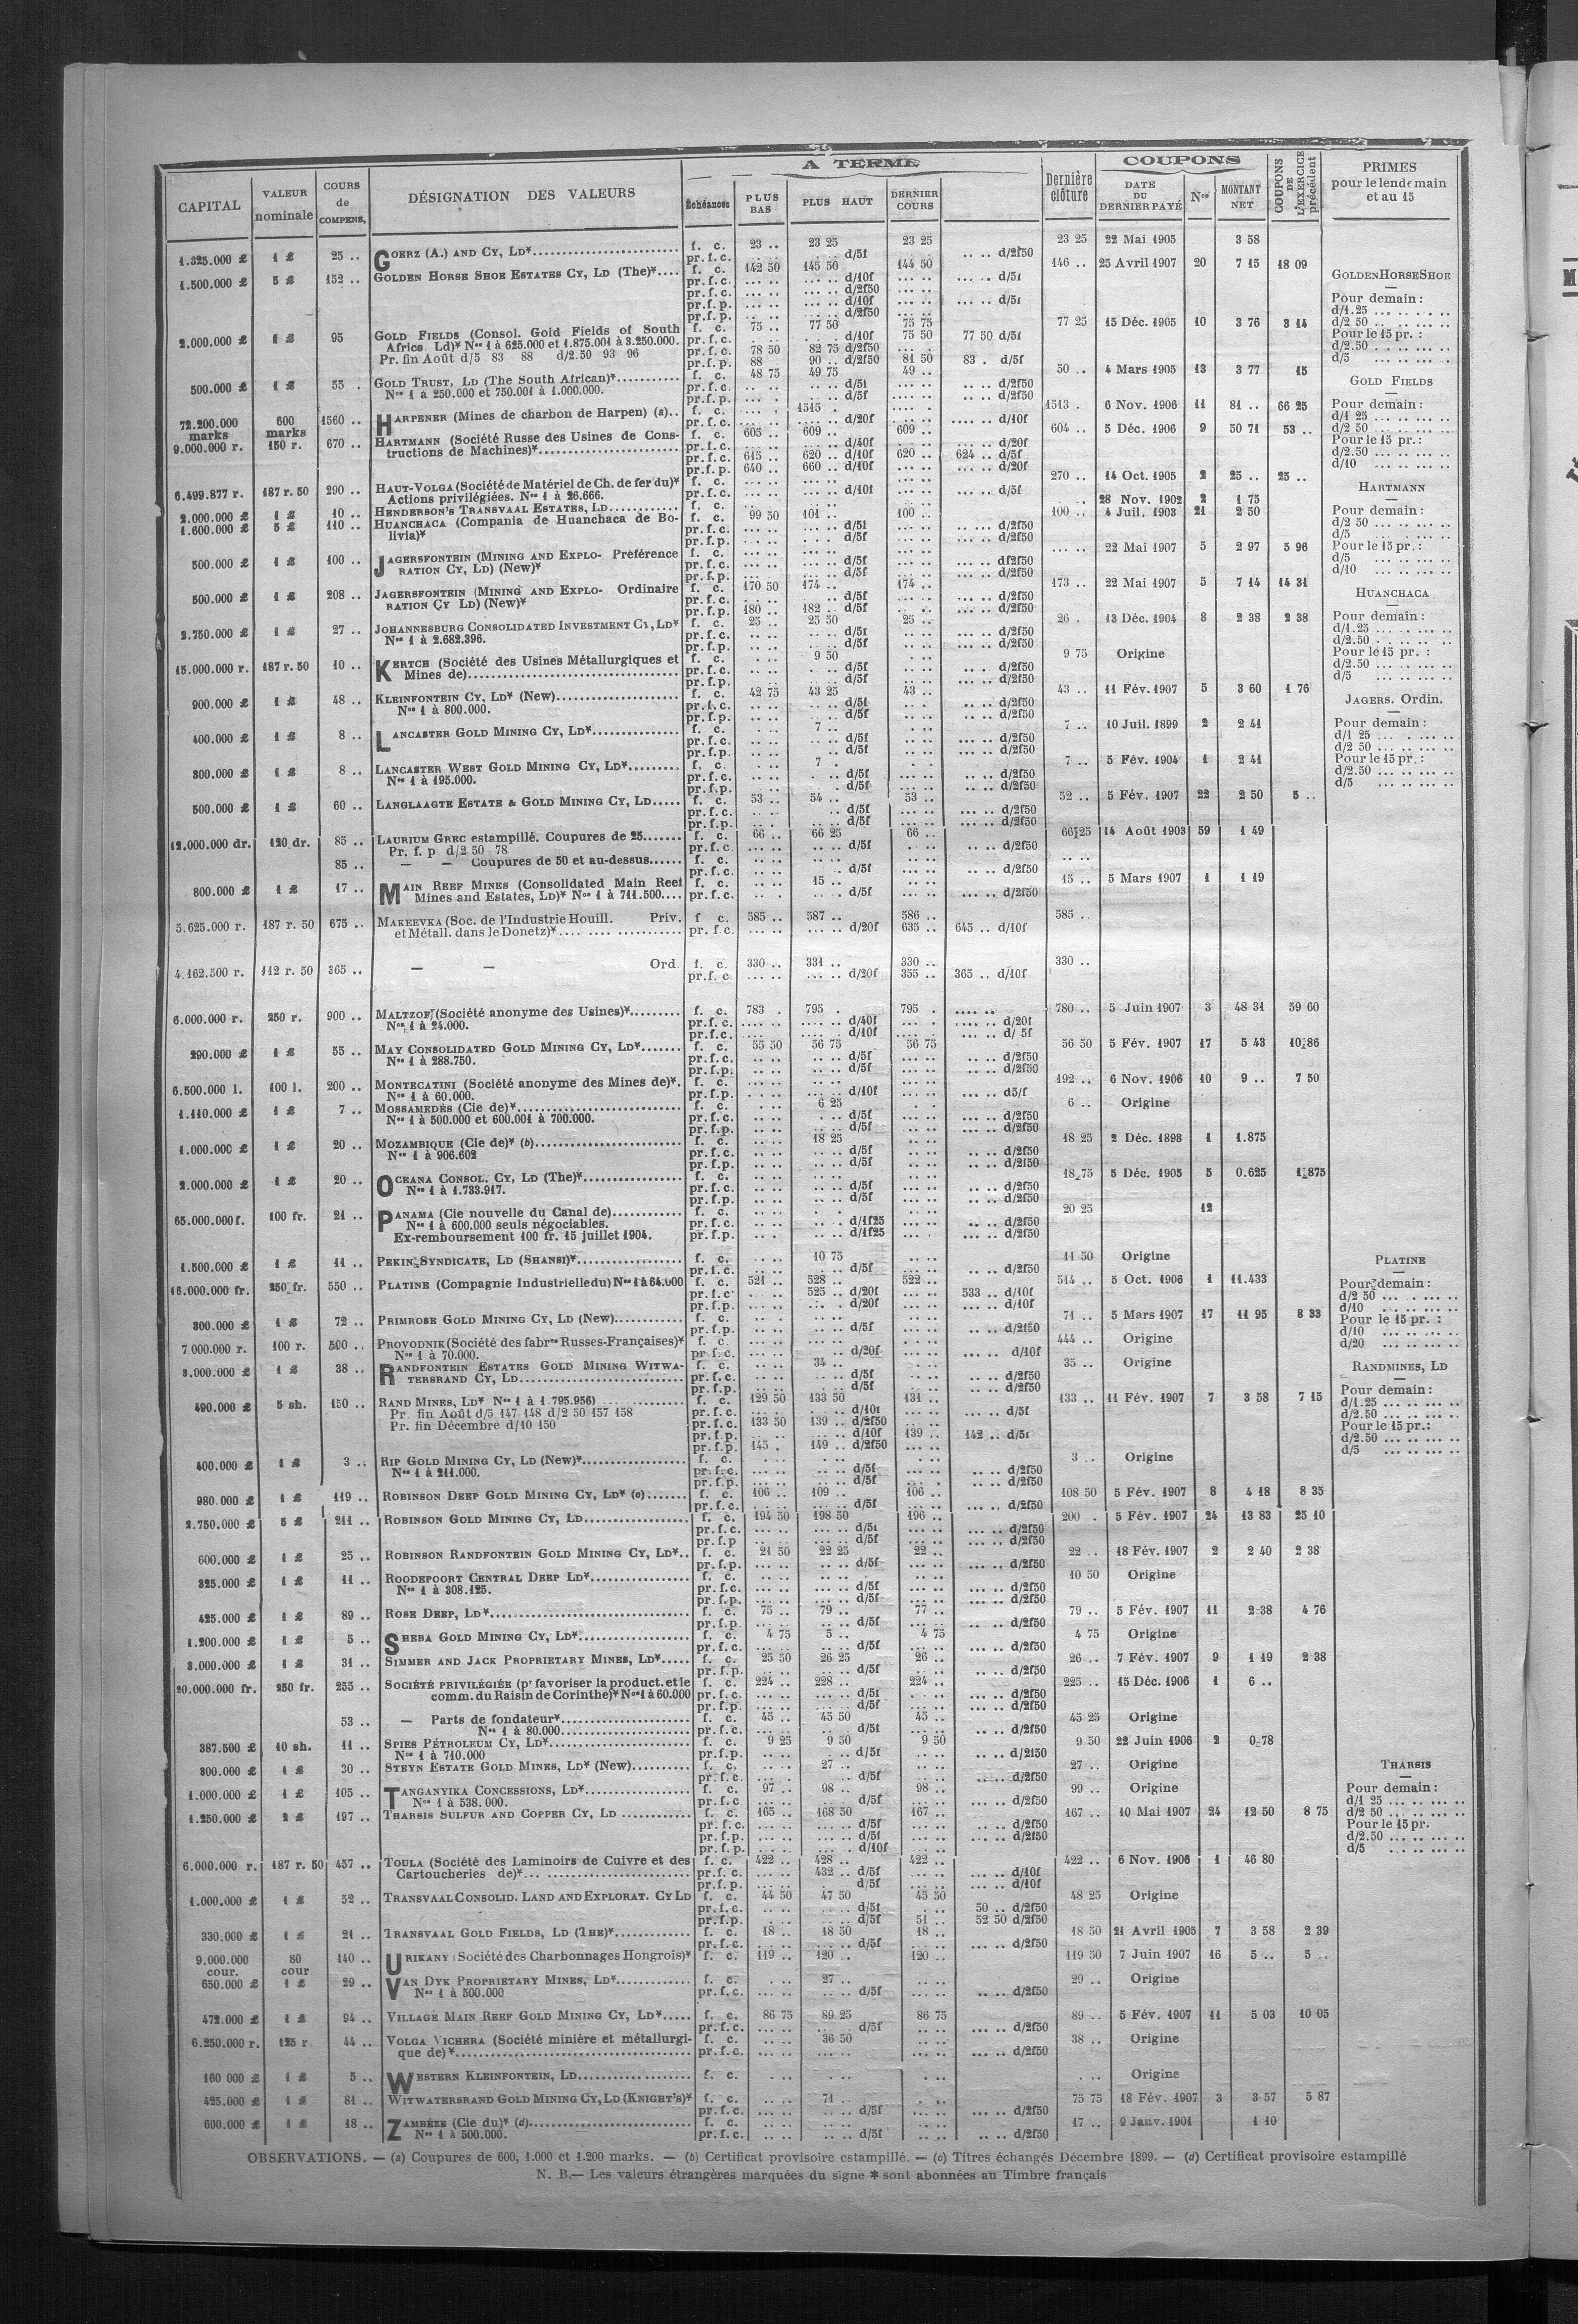 A TERME
COUPONS
CAPITAL | VALEUR nominale | COURS de COMPENS. | DÉSIGNATION DES VALEURS | Échéances | PLUS BAS | PLUS HAUT | DERNIER COURS | Dernière clôture | DATE DU DERNIER PAYÉ | Nos | MONTANT NET | COUPONS DE L'EXERCICE précédent | PRIMES pour le lendemain et au 15
1.325.000 £ | 1 £ | 25 .. | GOERZ (A.) AND CY, LD* | f. c. | 23 .. | 23 25 | 23 25 | 23 25 | 22 Mai 1905 | 3 58
pr.f.c. | d/5f | .. .. d/2f50
1.500.000 £ | 5 £ | 152 .. | GOLDEN HORSE SHOE ESTATES CY, LD (The)* | f. c. | 142 50 | 145 50 | 144 50 | 146 .. | 25 Avril 1907 | 20 | 7 15 | 18 09
pr.f.c. | d/10f | d/5f
pr.f.c. | d/2f50
pr.f.p. | d/10f | d/5f
pr.f.p. | d/2f50
2.000.000 £ | 1 £ | 95 | GOLD FIELDS (Consol. Gold Fields of South | f. c. | 75 .. | 77 50 | 75 75 | 77 25 | 15 Déc. 1905 | 10 | 3 76 | 3 14
Africa Ld)* Nos 1 à 625.000 et 1.875.001 à 3.250.000. | pr.f.c. | d/10f | 75 50 | 77 50 d/5f
Pr. fin Août d/5 83 88 d/2.50 93 96 | pr.f.c. | 78 50 | 82 75 d/2f50
pr.f.p. | 88 | 90 .. d/2f50 | 81 50 | 83 . d/5f
500.000 £ | 1 £ | 55 . | GOLD TRUST, LD (The South African)* | f. c. | 48 75 | 49 75 | 49 .. | 50 .. | 4 Mars 1905 | 13 | 3 77 | 15
Nos 1 à 250.000 et 750.001 à 1.000.000.
72.200.000 marks | 600 marks | 1560 .. | HARPENER (Mines de charbon de Harpen) (a).. | f. c. | 1515 . | 1513 . | 6 Nov. 1906 | 11 | 81 .. | 66 25
pr.f.c. | d/20f | d/10f
9.000.000 r. | 150 r. | 670 .. | HARTMANN (Société Russe des Usines de Cons- | f. c. | 605 .. | 609 .. | 609 .. | 604 .. | 5 Déc. 1906 | 9 | 50 71 | 53 ..
tructions de Machines)* | pr.f.c. | d/40f | d/20f
pr.f.c. | 615 .. | 620 .. d/10f | 620 .. | 624 .. d/5f
pr.f.p. | 640 .. | 660 .. d/10f | d/20f
6.499.877 r. | 187 r. 50 | 290 .. | HAUT-VOLGA (Société de Matériel de Ch. de fer du)* | f. c. | 270 .. | 14 Oct. 1905 | 2 | 25 .. | 25 ..
Actions privilégiées. Nos 1 à 26.666. | pr.f.c. | d/10f | d/5f
2.000.000 £ | 1 £ | 10 .. | HENDERSON'S TRANSVAAL ESTATES, LD | f. c. | 28 Nov. 1902 | 2 | 1 75
1.600.000 £ | 5 £ | 110 .. | HUANCHACA (Compania de Huanchaca de Bo- | f. c. | 99 50 | 101 .. | 100 .. | 100 .. | 4 Juil. 1903 | 21 | 2 50
livia)* | pr.f.c. | d/5f | d/2f50
500.000 £ | 1 £ | 100 .. | JAGERSFONTEIN (MINING AND EXPLO- Préférence | f. c. | 22 Mai 1907 | 5 | 2 97 | 5 96
RATION CY, LD) (New)* | pr.f.c. | d/5f | d/2f50
500.000 £ | 1 £ | 208 .. | JAGERSFONTEIN (MINING AND EXPLO- Ordinaire | f. c. | 170 50 | 174 .. | 174 .. | 173 .. | 22 Mai 1907 | 5 | 7 14 | 14 31
RATION CY LD) (New)* | pr.f.c. | d/5f | d/2f50
pr.f.p. | 180 .. | 182 .. d/5f | d/2f50
2.750.000 £ | 1 £ | 27 .. | JOHANNESBURG CONSOLIDATED INVESTMENT CY, LD* | f. c. | 25 .. | 25 50 | 25 .. | 26 . | 13 Déc. 1904 | 8 | 2 38 | 2 38
Nos 1 à 2.682.396.
15.000.000 r. | 187 r. 50 | 10 .. | KERTCH (Société des Usines Métallurgiques et | f. c. | 9 50 | 9 75 | Origine
Mines de)
900.000 £ | 1 £ | 48 .. | KLEINFONTEIN CY, LD* (New) | f. c. | 42 75 | 43 25 | 43 .. | 43 .. | 11 Fév. 1907 | 5 | 3 60 | 1 76
Nos 1 à 800.000.
400.000 £ | 1 £ | 8 .. | LANCASTER GOLD MINING CY, LD* | f. c. | 7 .. | 7 .. | 10 Juil. 1899 | 2 | 2 41
300.000 £ | 1 £ | 8 .. | LANCASTER WEST GOLD MINING CY, LD* | f. c. | 7 . | 7 .. | 5 Fév. 1904 | 1 | 2 41
Nos 1 à 195.000.
500.000 £ | 1 £ | 60 .. | LANGLAAGTE ESTATE & GOLD MINING CY, LD | f. c. | 53 .. | 54 .. | 53 .. | 52 .. | 5 Fév. 1907 | 22 | 2 50 | 5 ..
12.000.000 dr. | 120 dr. | 85 .. | LAURIUM GREC estampillé. Coupures de 25 | f. c. | 66 .. | 66 25 | 66 .. | 66 25 | 14 Août 1903 | 59 | 1 49
Pr. f. p. d/2 50 78 | pr.f.c. | d/5f | d/2f50
85 .. | — — Coupures de 50 et au-dessus | f. c.
800.000 £ | 1 £ | 17 .. | MAIN REEF MINES (Consolidated Main Reef | f. c. | 15 .. | 15 .. | 5 Mars 1907 | 1 | 1 19
Mines and Estates, LD)* Nos 1 à 711.500 | pr.f.c. | d/5f | d/2f50
5.625.000 r. | 187 r. 50 | 675 .. | MAKEEVKA (Soc. de l'Industrie Houill. Priv. | f. c. | 585 .. | 587 .. | 586 .. | 585 ..
et Métall. dans le Donetz)* | pr.f.c. | d/20f | 635 .. | 645 .. d/10f
4.162.500 r. | 112 r. 50 | 365 .. | — — Ord | f. c. | 330 .. | 331 .. | 330 .. | 330 ..
pr.f.c. | d/20f | 355 .. | 365 .. d/10f
6.000.000 r. | 250 r. | 900 .. | MALTZOF (Société anonyme des Usines)* | f. c. | 783 . | 795 . | 795 . | 780 .. | 5 Juin 1907 | 3 | 48 31 | 59 60
Nos 1 à 24.000. | pr.f.c. | d/40f | d/20f
pr.f.c. | d/10f | d/ 5f
290.000 £ | 1 £ | 55 .. | MAY CONSOLIDATED GOLD MINING CY, LD* | f. c. | 55 50 | 56 75 | 56 75 | 56 50 | 5 Fév. 1907 | 17 | 5 43 | 10 86
Nos 1 à 288.750.
6.500.000 l. | 100 l. | 200 .. | MONTECATINI (Société anonyme des Mines de)*. | f. c. | 192 .. | 6 Nov. 1906 | 10 | 9 .. | 7 50
Nos 1 à 60.000. | pr.f.p. | d/10f | d5/f
1.110.000 £ | 1 £ | 7 .. | MOSSAMEDÈS (Cie de)* | f. c. | 6 25 | 6 .. | Origine
Nos 1 à 500.000 et 600.001 à 700.000.
1.000.000 £ | 1 £ | 20 .. | MOZAMBIQUE (Cie de)* (b) | f. c. | 18 25 | 18 25 | 2 Déc. 1898 | 1 | 1.875
Nos 1 à 906.602
2.000.000 £ | 1 £ | 20 .. | OCEANA CONSOL. CY, LD (The)* | f. c. | 18 75 | 5 Déc. 1905 | 5 | 0.625 | 1 875
Nos 1 à 1.733.917.
65.000.000 f. | 100 fr. | 21 .. | PANAMA (Cie nouvelle du Canal de) | f. c. | 20 25 | 12
Nos 1 à 600.000 seuls négociables. | pr.f.c. | d/1f25 | d/2f50
Ex-remboursement 100 fr. 15 juillet 1904. | pr.f.p. | d/1f25 | d/2f50
1.500.000 £ | 1 £ | 11 .. | PEKIN SYNDICATE, LD (SHANSI)* | f. c. | 10 75 | 11 50 | Origine
16.000.000 fr. | 250 fr. | 550 .. | PLATINE (Compagnie Industrielle du) Nos 1 à 64.000 | f. c. | 521 .. | 528 .. | 522 .. | 514 .. | 5 Oct. 1906 | 1 | 11.433
pr.f.c. | 525 .. d/20f | 533 .. d/10f
pr.f.p. | d/20f | d/10f
300.000 £ | 1 £ | 72 .. | PRIMROSE GOLD MINING CY, LD (New) | f. c. | 71 . | 5 Mars 1907 | 17 | 11 95 | 8 33
7.000.000 r. | 100 r. | 500 .. | PROVODNIK (Société des fabres Russes-Françaises)* | f. c. | 444 .. | Origine
Nos 1 à 70.000. | pr.f.c. | d/20f | d/10f
3.000.000 £ | 1 £ | 38 .. | RANDFONTEIN ESTATES GOLD MINING WITWA- | f. c. | 34 .. | 35 .. | Origine
TERSRAND CY, LD
490.000 £ | 5 sh. | 150 .. | RAND MINES, LD* Nos 1 à 1.795.956) | f. c. | 129 50 | 133 50 | 131 .. | 133 .. | 11 Fév. 1907 | 7 | 3 58 | 7 15
Pr. fin Août d/5 147 148 d/2 50 157 158 | pr.f.c. | d/10f | d/5f
Pr. fin Décembre d/10 150 | pr.f.c. | 133 50 | 139 .. d/2f50
pr.f.p. | d/10f | 139 .. | 142 .. d/5f
pr.f.p. | 145 . | 149 .. d/2f50
400.000 £ | 1 £ | 3 .. | RIP GOLD MINING CY, LD (New)* | f. c. | 3 .. | Origine
Nos 1 à 211.000.
980.000 £ | 1 £ | 119 .. | ROBINSON DEEP GOLD MINING CY, LD* (c) | f. c. | 106 .. | 109 .. | 106 .. | 108 50 | 5 Fév. 1907 | 8 | 4 18 | 8 35
2.750.000 £ | 5 £ | 211 .. | ROBINSON GOLD MINING CY, LD | f. c. | 194 50 | 198 50 | 196 .. | 200 . | 5 Fév. 1907 | 24 | 13 83 | 25 10
600.000 £ | 1 £ | 25 .. | ROBINSON RANDFONTEIN GOLD MINING CY, LD*.. | f. c. | 21 50 | 22 25 | 22 .. | 22 .. | 18 Fév. 1907 | 2 | 2 40 | 2 38
325.000 £ | 1 £ | 11 .. | ROODEPOORT CENTRAL DEEP LD* | f. c. | 10 50 | Origine
Nos 1 à 308.125.
425.000 £ | 1 £ | 89 .. | ROSE DEEP, LD* | f. c. | 75 .. | 79 .. | 77 .. | 79 .. | 5 Fév. 1907 | 11 | 2 38 | 4 76
1.200.000 £ | 1 £ | 5 .. | SHEBA GOLD MINING CY, LD* | f. c. | 4 75 | 5 .. | 4 75 | 4 75 | Origine
3.000.000 £ | 1 £ | 31 .. | SIMMER AND JACK PROPRIETARY MINES, LD* | f. c. | 25 50 | 26 25 | 26 .. | 26 .. | 7 Fév. 1907 | 9 | 1 19 | 2 38
20.000.000 fr. | 250 fr. | 255 .. | SOCIÉTÉ PRIVILÉGIÉE (pr favoriser la product. et le | f. c. | 224 .. | 228 .. | 224 .. | 225 .. | 15 Déc. 1906 | 1 | 6 ..
comm. du Raisin de Corinthe)* Nos 1 à 60.000
53 .. | — Parts de fondateur* | f. c. | 45 .. | 45 50 | 45 .. | 45 25 | Origine
Nos 1 à 80.000
387.500 £ | 10 sh. | 11 .. | SPIES PÉTROLEUM CY, LD* | f. c. | 9 25 | 9 50 | 9 50 | 9 50 | 22 Juin 1906 | 2 | 0 78
Nos 1 à 710.000
300.000 £ | 1 £ | 30 .. | STEYN ESTATE GOLD MINES, LD* (New) | f. c. | 27 .. | 27 .. | Origine
1.000.000 £ | 1 £ | 105 .. | TANGANYIKA CONCESSIONS, LD* | f. c. | 97 .. | 98 .. | 98 .. | 99 .. | Origine
Nos 1 à 538.000.
1.250.000 £ | 2 £ | 197 .. | THARSIS SULFUR AND COPPER CY, LD | f. c. | 165 .. | 168 50 | 167 .. | 167 .. | 10 Mai 1907 | 24 | 12 50 | 8 75
pr.f.c. | d/5f | d/2f50
pr.f.p. | d/5f | d/2f50
pr.f.p. | d/10f
6.000.000 r. | 187 r. 50 | 457 .. | TOULA (Société des Laminoirs de Cuivre et des | f. c. | 422 .. | 428 .. | 422 .. | 422 .. | 6 Nov. 1906 | 1 | 46 80
Cartoucheries de)* | pr.f.c. | 432 .. d/5f | d/10f
1.000.000 £ | 1 £ | 52 .. | TRANSVAAL CONSOLID. LAND AND EXPLORAT. CY LD | f. c. | 44 50 | 47 50 | 45 50 | 48 25 | Origine
pr.f.c. | d/5f | 50 .. d/2f50
pr.f.p. | d/5f | 51 .. | 52 50 d/2f50
330.000 £ | 1 £ | 21 .. | TRANSVAAL GOLD FIELDS, LD (THE)* | f. c. | 18 .. | 18 50 | 18 .. | 18 50 | 21 Avril 1905 | 7 | 3 58 | 2 39
9.000.000 cour. | 80 cour | 140 .. | URIKANY (Société des Charbonnages Hongrois)* | f. c. | 119 .. | 120 .. | 120 .. | 119 50 | 7 Juin 1907 | 16 | 5 .. | 5 ..
650.000 £ | 1 £ | 29 .. | VAN DYK PROPRIETARY MINES, LD* | f. c. | 27 .. | 29 .. | Origine
Nos 1 à 500.000 | pr.f.c. | d/5f | d/2f50
472.000 £ | 1 £ | 94 .. | VILLAGE MAIN REEF GOLD MINING CY, LD* | f. c. | 86 75 | 89 25 | 86 75 | 89 .. | 5 Fév. 1907 | 11 | 5 03 | 10 05
6.250.000 r. | 125 r. | 44 .. | VOLGA VICHERA (Société minière et métallurgi- | f. c. | 36 50 | 38 .. | Origine
que de)* | pr.f.c. | d/2f50
160 000 £ | 1 £ | 5 .. | WESTERN KLEINFONTEIN, LD | f. c. | Origine
425.000 £ | 1 £ | 81 .. | WITWATERSRAND GOLD MINING CY, LD (KNIGHT'S)* | f. c. | 71 .. | 75 75 | 18 Fév. 1907 | 3 | 3 57 | 5 87
600.000 £ | 1 £ | 18 .. | ZAMBÈZE (Cie du)* (d) | f. c. | 17 .. | 9 Janv. 1901 | 1 10
Nos 1 à 500.000. | pr.f.c. | d/5f | d/2f50
GOLDEN HORSE SHOE
Pour demain :
d/1.25
d/2 50
Pour le 15 pr. :
d/2.50
d/5
GOLD FIELDS
Pour demain :
d/1 25
d/2 50
Pour le 15 pr. :
d/2.50
d/10
HARTMANN
Pour demain :
d/2 50
d/5
Pour le 15 pr. :
d/5
d/10
HUANCHACA
Pour demain :
d/1.25
d/2.50
Pour le 15 pr. :
d/2.50
d/5
JAGERS. Ordin.
Pour demain :
d/1 25
d/2 50
Pour le 15 pr. :
d/2.50
d/5
PLATINE
Pour demain :
d/2 50
d/10
Pour le 15 pr. :
d/10
d/20
RANDMINES, LD
Pour demain :
d/1.25
d/2.50
Pour le 15 pr. :
d/2.50
d/5
THARSIS
Pour demain :
d/1 25
d/2 50
Pour le 15 pr.
d/2.50
d/5
OBSERVATIONS. — (a) Coupures de 600, 1.000 et 1.200 marks. — (b) Certificat provisoire estampillé. — (c) Titres échangés Décembre 1899. — (d) Certificat provisoire estampillé
N. B.— Les valeurs étrangères marquées du signe * sont abonnées au Timbre français